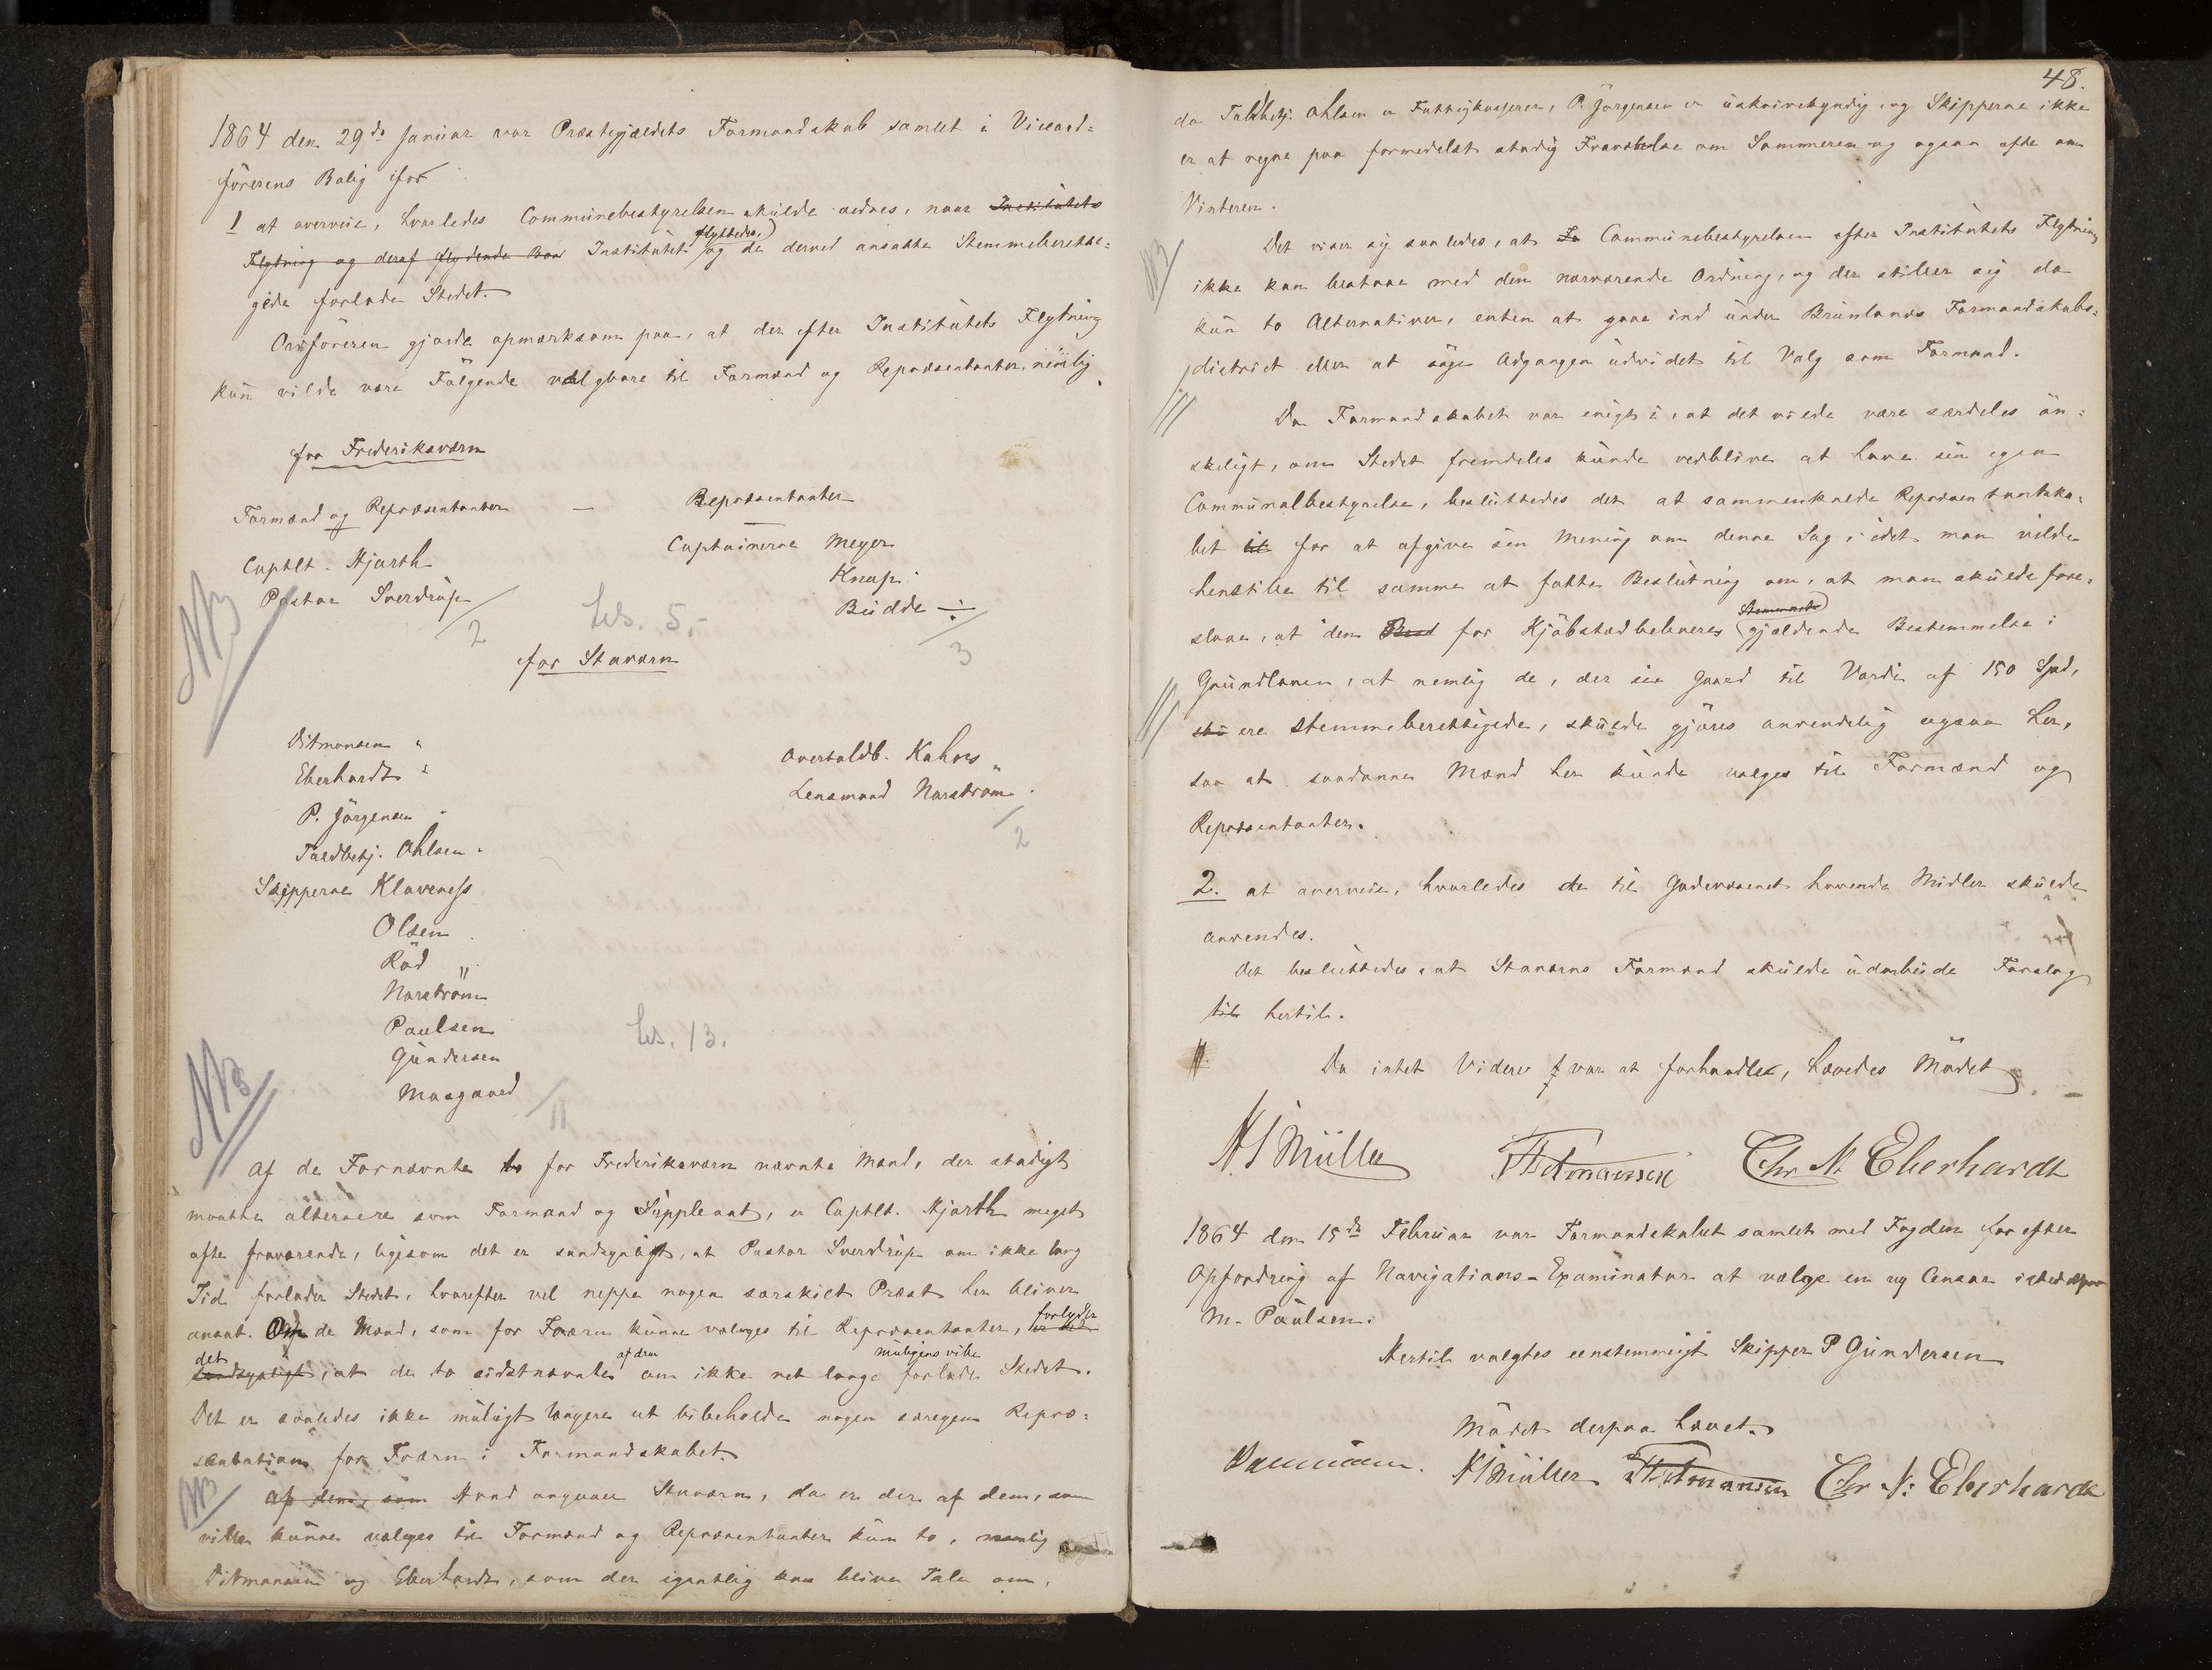 1864 den 29de Januar var Præstegjældets Formandskab samlet i Viceord-
førerens Bolig for
1 at overveie, hvorledes Communebestyrelsen skulde ordnes, naar Institutets
Flytning og deraf flydende Institutet flyttedes, og de derved ansatte Stemmeberetti-
gede forlade Stedet.
Ordføreren gjorde opmærksom paa, at der efter Institutets Flytning
kun vilde være Følgende valgbare til Formænd og Repræsentanter, nemlig
for Frederiksværn
Formænd og Repræsentanter — Repræsentanter
Captlt. Hjorth Captainerne Meyer
Pastor Sverdrup Knap
2 Ls. 5,- Budde ÷
3
NB
for Staværn
Ditmansen "
Eberhardt "
Overtoldb. Kahrs "
P. Jörgensen "
Lensmand Norström
2
Toldbetj. Ohlsen "
Skipperne Klaveness
Olsen
Röd "
Norström
Paulsen
Ls. 13.
Gundersen
Maagaard
11
NB
Af de Fornævnte to for Frederiksværn nævnte Mænd, der stadigt
maatte alternere som Formand og Suppleant, er Captlt. Hjorth meget
ofte fraværende, ligesom det er sandsynligt, at Pastor Sverdrup om ikke lang
Tid forlader Stedet, hvorefter vel neppe nogen særskilt Præst her bliver
ansat. Om de Mænd, som for Fværn kunne vælges til Repræsentanter, forlyder er det
det sandsynligt, at de to sidstnævnte af dem om ikke ret længe muligens ville forlade Stedet.
Det er saaledes ikke muligt længere at bibeholde nogen særegen Repræ-
sentation for Fværn i Formandskabet.
NB
Af dem, som Hvad angaaer Staværn, da er der af dem, som
ville kunne vælges til Formænd og Repræsentanter kun to, nemlig
Ditmansen og Eberhardt, som der egentlig kan blive Tale om,
48.
da Toldbetj. Ohlsen er Fattigkasserer, P. Jörgensen er uskrivekyndig, og Skipperne ikke
er at regne paa formedelst stadig Fraværelse om Sommeren og ogsaa ofte om
Vinteren.
NB
Det viser sig saaledes, at Communebestyrelsen efter Institutets Flytning
ikke kan bestaae med den nærværende Ordning, og der stiller sig da
kun to Alternativer, enten at gaae ind under Brunlanæs Formandskabs-
district eller at søge Adgangen udvidet til Valg som Formænd.
Da Formandskabet var enigt i, at det vilde være særdeles øn-
skeligt, om Stedet fremdeles kunde vedblive at have sin egen
Communalbestyrelse, besluttedes det at sammenkalde Repræsentantska-
bet til for at afgive sin Mening om denne Sag, idet man vilde
henstille til samme at fatte Beslutning om, at man skulde fore-
slaae, at den for Kjøbstædbeboeres Stemmeret gjældende Bestemmelse i
Grundloven, at nemlig de, der eie Gaard til Værdi af 150 Spd,
ere stemmeberettigede, skulde gjøres anvendelig ogsaa her,
saa at saadanne Mænd her kunde vælges til Formænd og
Repræsentanter.
2. at overveie, hvorledes de til Gadevæsenet havende Midler skulde
anvendes.
Det besluttedes, at Staværns Formænd skulde udarbeide Forslag
til hertil.
Da intet Videre var at forhandle, hævedes Mødet.
H S Müller F Ditmansen Chr N. Eberhardt
1864 den 15de Februar var Formandskabet samlet med Fogden for efter
Opfordring af Navigations-Examinator at vælge en ny Censor istedetfor
M. Paulsen.
Hertil valgtes eenstemmigt Skipper P Gundersen
Mødet derpaa hævet.
H S Müller F Ditmansen Chr N: Eberhardt